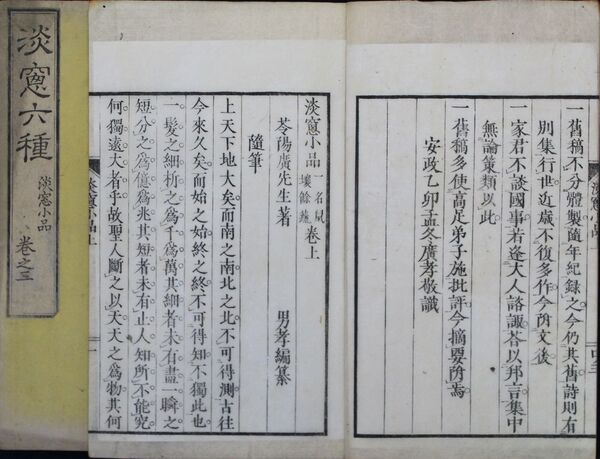 一舊稿不分體製隨年紀錄之今仍其舊詩則有
別集行世近歲不復多作今附文後
一家君不談國事若逢大人諮諏荅以邦言集中
無論策類以此
一舊稿多使高足弟子施批評今摘要附焉
安政乙卯孟冬廣孝敬識
淡窻小品
淡窻小品一名鼠壤餘蔬卷上
苓陽廣先生著 男孝編纂
隨筆
上天下地大矣而南之南北之北不可得測古往
今來久矣而始之始終之終不可得知不獨此也
一髮之細析之爲千爲萬其細者未有盡一瞬之
短分之爲億爲兆其短者未有止人知所不能究
何獨遠大者乎故聖人斷之以天天之爲物其何
淡窻小品上 一
淡窻六種
淡窻小品
卷之三